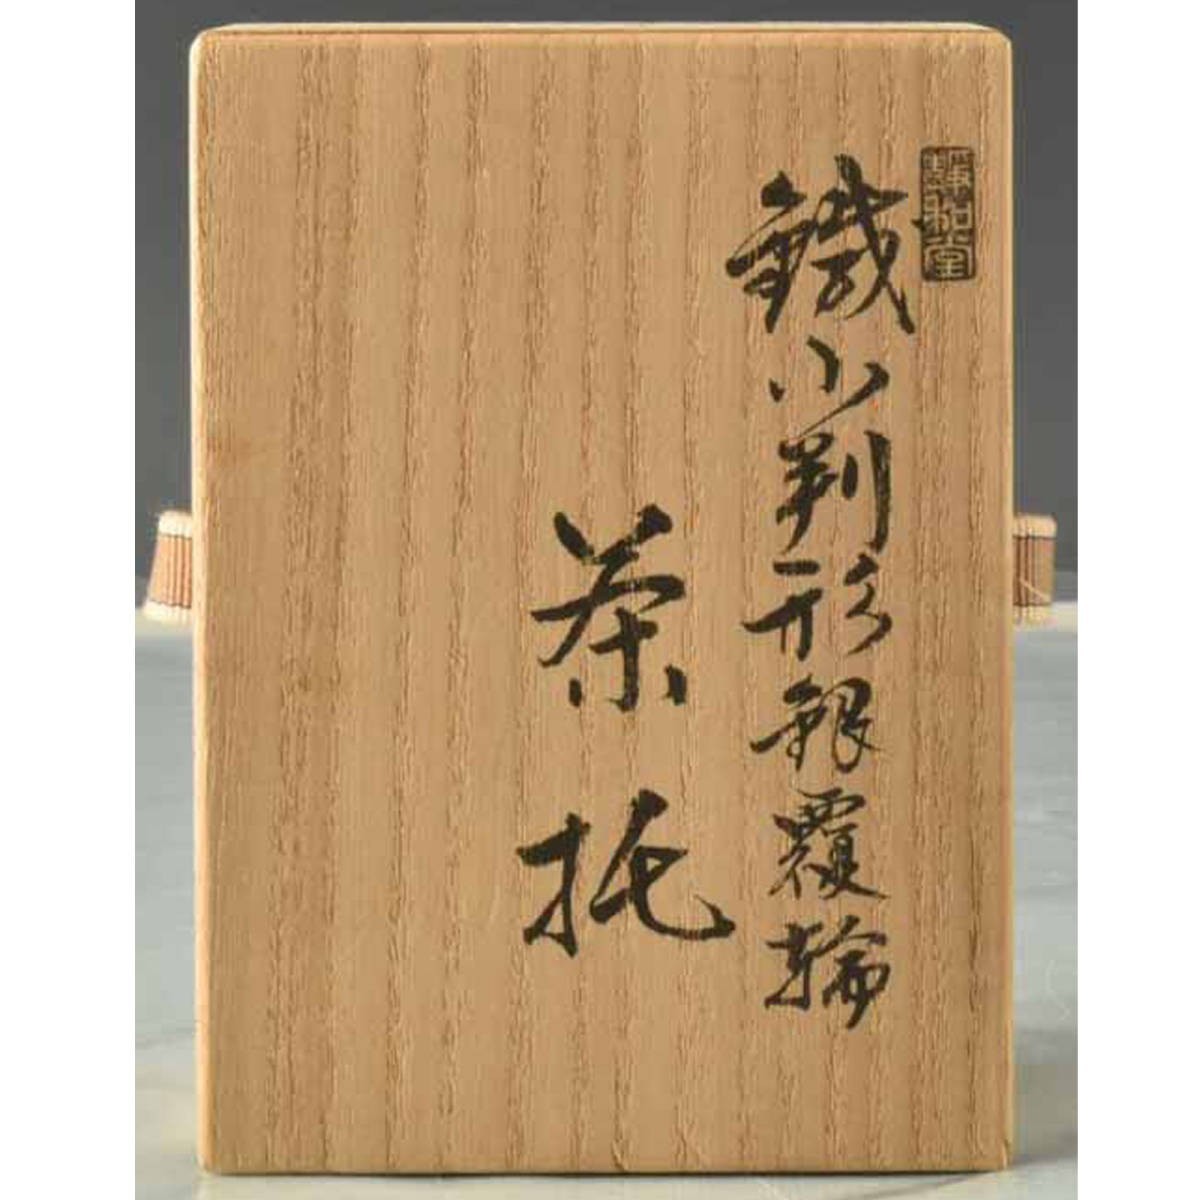 鐵小判形銀覆輪
茶托